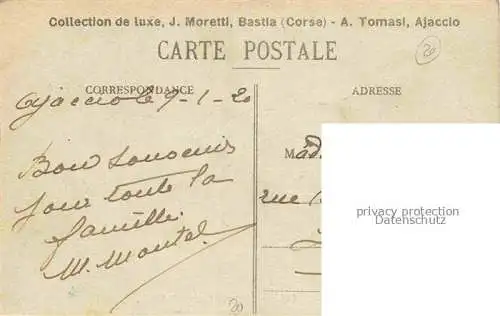 Collection de luxe, J. Moretti, Bastia (Corse) - A. Tomasi, Ajaccio
CARTE POSTALE
20
CORRESPONDANCE
ADRESSE
Ajaccio le 9-1-20
Bon souvenir
pour toute la
famille.
M. Montel
Mad
rue
privacy protection
Datenschutz
20